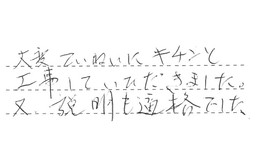 大変ていねいにキチンと
工事していただきました。
又、説明も適格でした